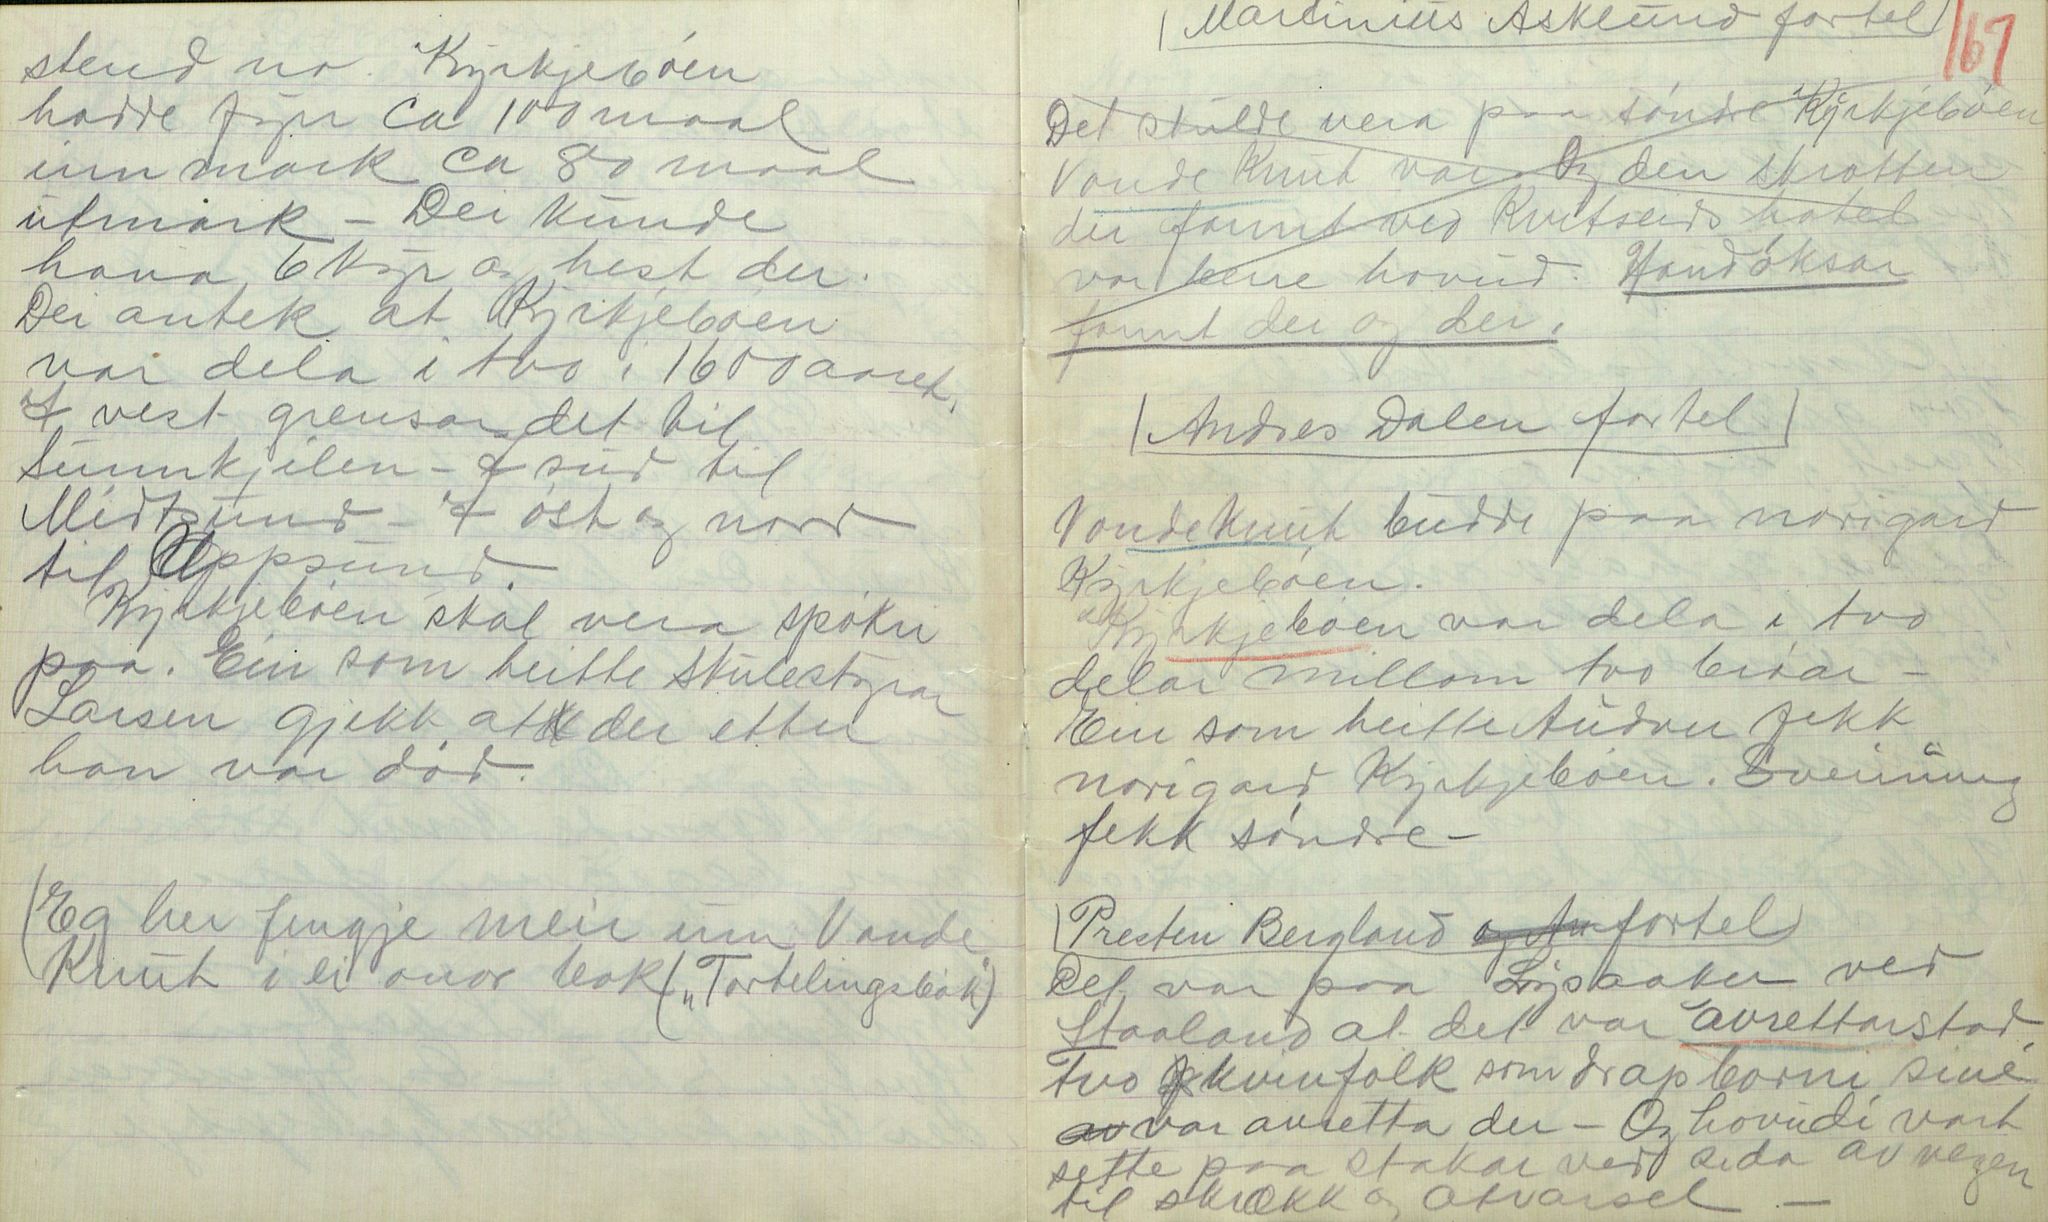 stend no. Kyrkjebóen
hadde fyrr ca 100 maal
innmark ca 80 maal
utmark – Dei kunde
hava 6 kyr og hest der.
Dei antek at Kyrkjebóen
var dela i tvo i 1600 aaret.
I vest grensar det til
Sunnkjilen – I sud til
Midtsund – I óst og nord
til Uppsund.
Kyrkjebóen skal vera spókji
paa. Ein som heitte Stulestyrar
Larsen gjekk att der etter
han var dód.
(Eg her fengje meir um Vonde
Knut i ei onor bok („Fortelingsbók")
(Martinius Asklund fortel)
167
Det skulde vera paa sóndre Kyrkjebóen
Vonde Knut var. Og den skrotten
dei fannt ved Kvitseids hotel
var berre hovud. Handóksar
fannt dei og der.
(Andres Dalen fortel)
Vonde Knut budde paa norigard
Kyrkjebóen.
Kyrkjebóen var dela i tvo
delar millom tvo bróar –
Ein som heitte Audon fekk
norigard Kyrkjebóen. Sveinung
fekk sóndre –
(Presten Bergland og fortel)
Det var paa Lysaaker ved
Staaland at det var avrettarstad
Tvo kvinfolk som drap borni sine
var avretta der – Og hovudi vart
sette paa stakar ved sida av vegen
til skrekk og atvarsel –